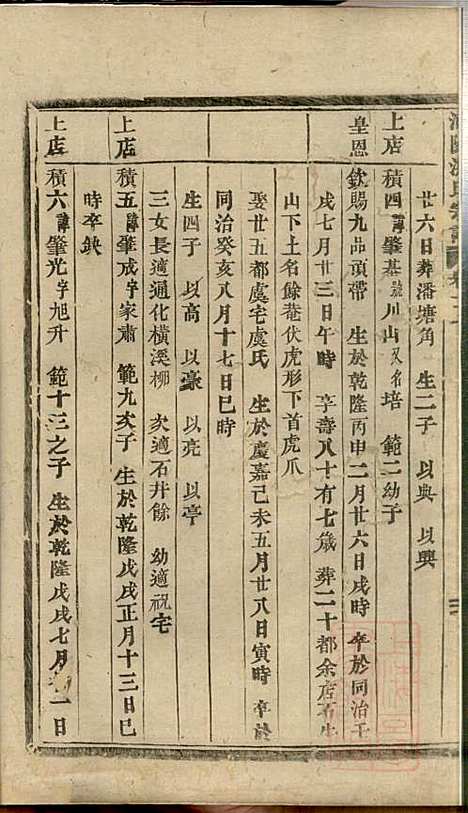 廿六日葬潘塘角 生二子 以典 以興
上店 積四諱肇基號川山又名培 範二幼子
皇恩欽賜九品頂帶 生於乾隆丙申二月廿六日戌時 卒於同治壬
戌七月廿三日午時 享壽八十有七歲 葬二十都余店石牛
山下土名餘菴伏虎形下首虎爪
娶廿五都虞宅虞氏 生於慶嘉己未五月廿八日寅時 卒於
同治癸亥八月十七日巳時
生四子 以高 以豪 以亮 以亭
三女長適通化橫溪柳 次適石井餘 幼適祝宅
上店 積五諱肇成字家肅 範九次子 生於乾隆戊戌正月十三日巳
時卒缺
上店 積六諱肇光字旭升 範十三之子 生於乾隆戊戌七月 一日